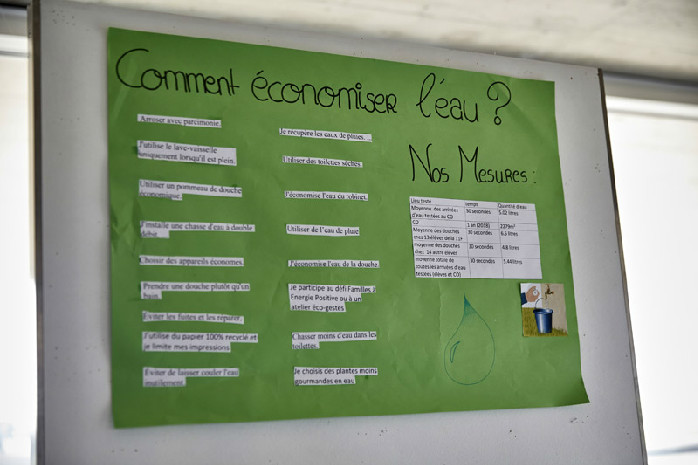 Comment économiser l'eau ?
Arroser avec parcimonie.
J'utilise le lave-vaisselle
uniquement lorsqu'il est plein.
Utiliser un pommeau de douche
économique.
J'installe une chasse d'eau à double
débit
Choisir des appareils économes.
Prendre une douche plutôt qu'un
bain.
Eviter les fuites et les réparer.
J'utilise du papier 100% recyclé et
je limite mes impressions
Eviter de laisser couler l'eau
inutilement.
Je récupère les eaux de pluies.
Utiliser des toilettes sèches.
J'économise l'eau du robinet.
Utiliser de l'eau de pluie
J'économise l'eau de la douche
Je participe au défi Familles à
Energie Positive ou à un
atelier éco-gestes
Chasser moins d'eau dans les
toilettes.
Je choisis des plantes moins
gourmandes en eau
Nos Mesures :
temps Quantité d'eau
Moyenne des arrivées 30 secondes 5.02 litres
d'eau testées au CO
CO 1 an (2018) 2279m³
Moyenne des douches 30 secondes
moyenne des douches 30 secondes
30 secondes
toutes les arrivées d'eau
testées (élèves et CO)